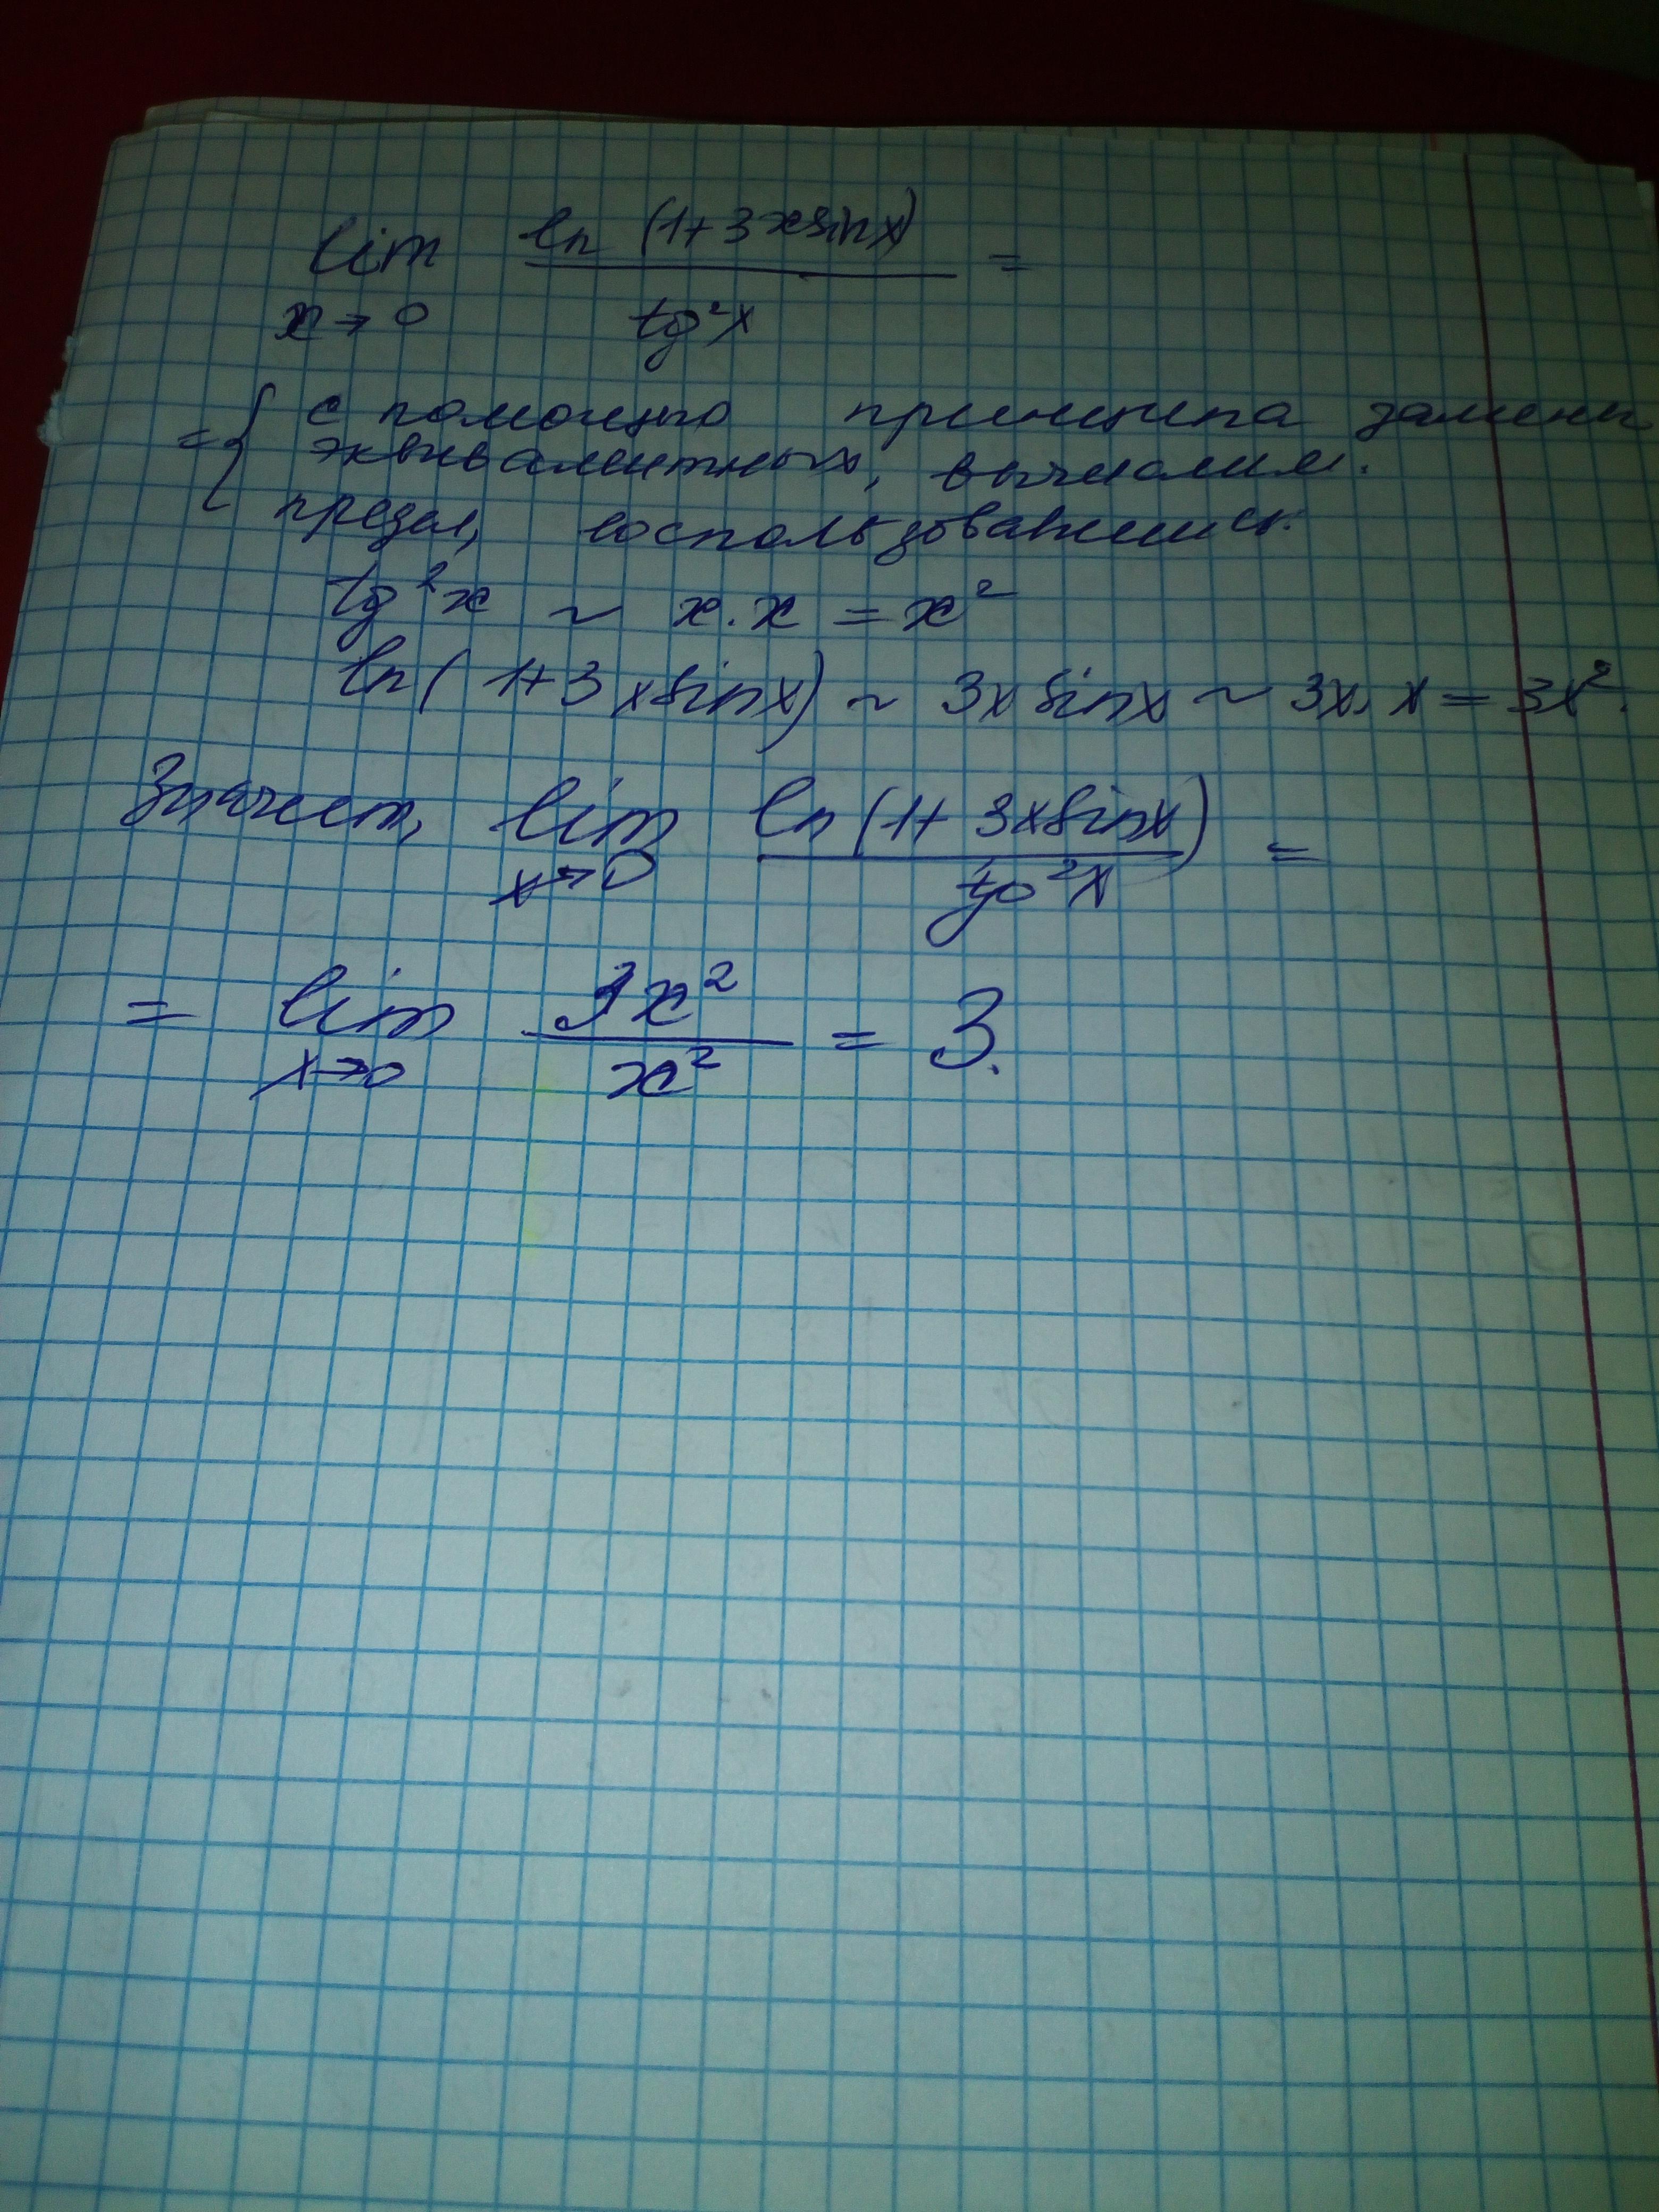 lim ln (1+3xsinx) =
x→0 tg²x
= { с помощью принципа замены
эквивалентных, вычислим.
предел, воспользовавшись.
tg²x ~ x·x = x²
ln(1+3xsinx) ~ 3xsinx ~ 3x·x = 3x².
Значит, lim ln(1+3xsinx) =
x→0 tg²x
= lim 3x² = 3.
x→0 x²